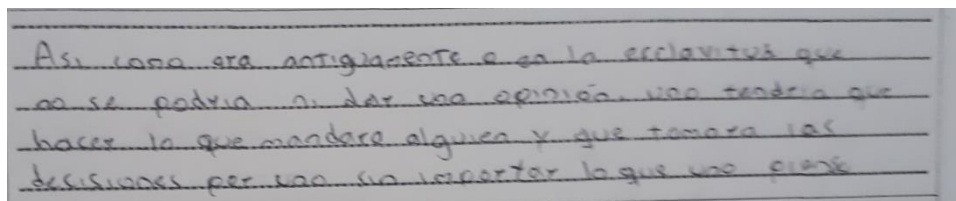 Asi como era antiguamente o en la esclavitus que
no se podria ni dar una opinión. uno tendria que
hacer lo que mandara alguien y que tomara las
desisiones por uno sin importar lo que uno piense